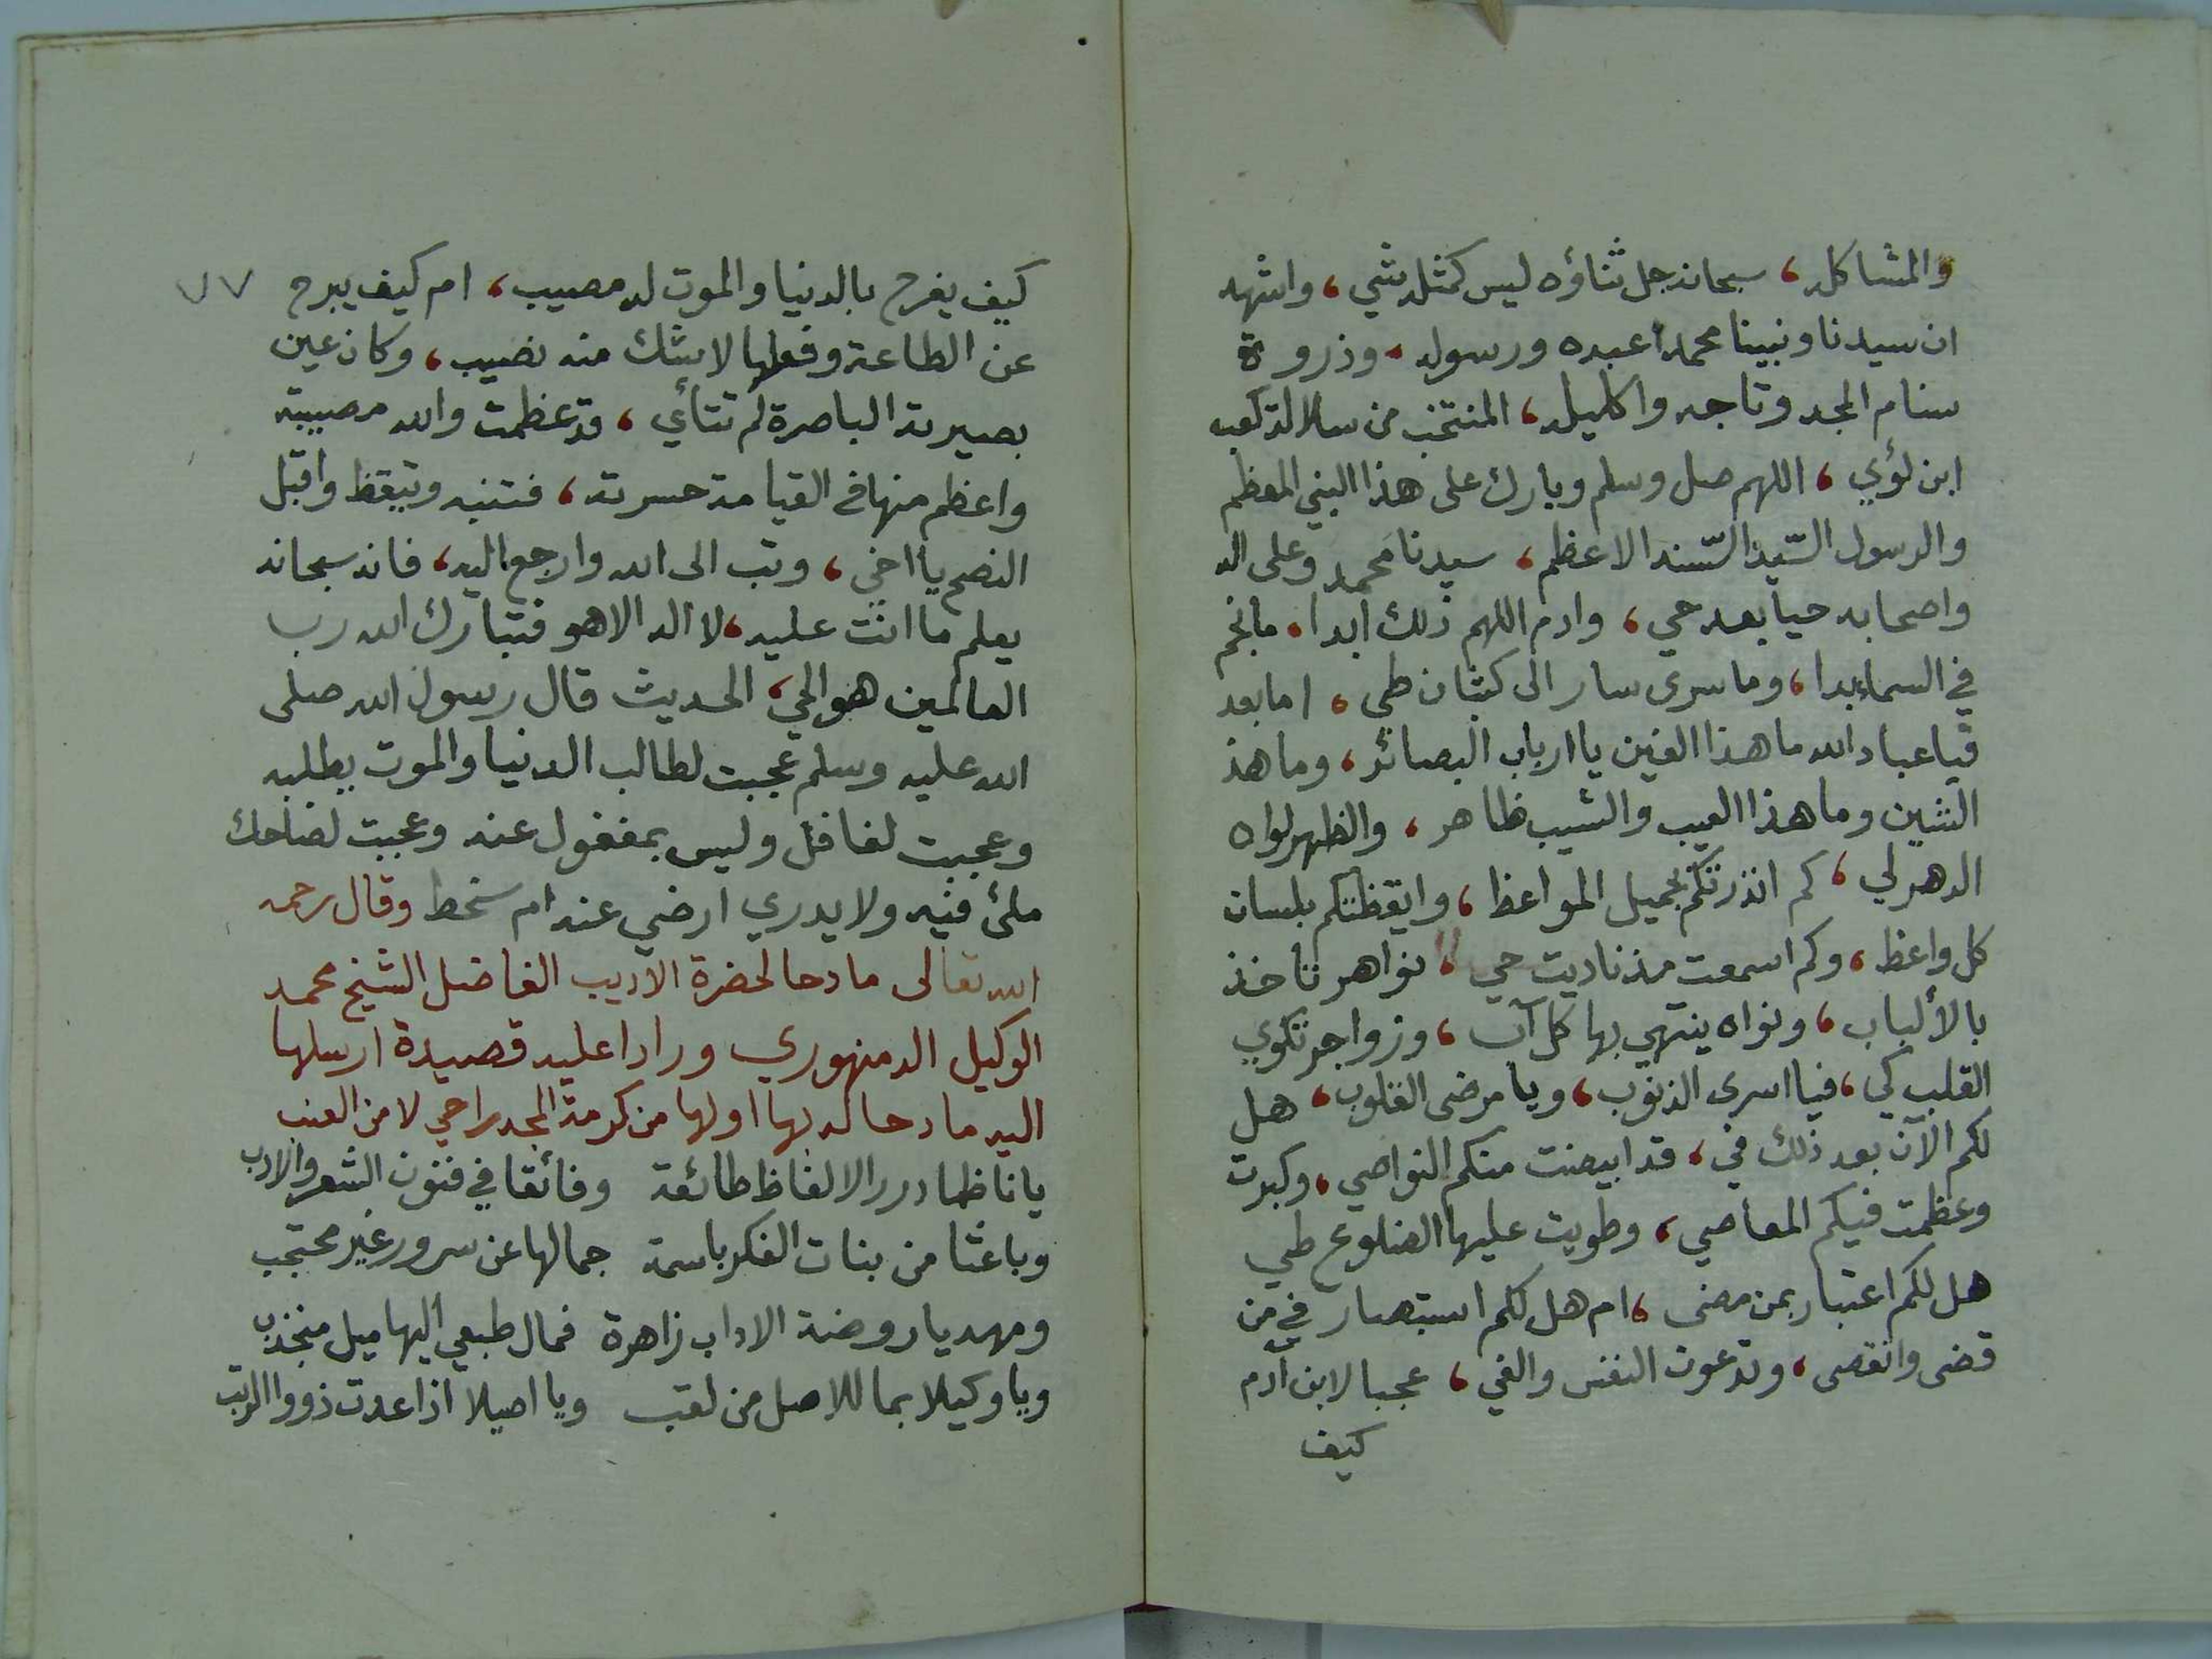 والمشاكله، سبحانه جل ثناؤه ليس كمثله شي، واشهد
ان سيدنا ونبينا محمدا عبده ورسوله، وذروة
سنام المجد وتاجه واكليله، المنتخب من سلالة كعب
ابن لؤي، اللهم صل وسلم وبارك على هذا النبي المعظم
والرسول السّيد السّند الاعظم، سيدنا محمد وعلى اله
واصحابه حيا بعد حي، وادم اللهم ذلك ابدا، ما نجم
في السماء بدا، وما سرى سار الى كثبان طي، اما بعد
فيا عباد الله ما هذا الغين يا ارباب البصائر، وما هذ
الشين وما هذا العيب والشيب ظاهر، والظهر لواه
الدهر لي، كم انذرتكم بجميل المواعظ، وايقظتكم بلسان
كل واعظ، وكم اسمعت مذ ناديت حي، نواهر تاخذ
بالألباب، ونواه ينتهي بها كل آب، وزواجر تكوي
القلب كي، فيا اسرى الذنوب، ويا مرضى القلوب، هل
لكم الآن بعد ذلك في، قد ابيضت منكم النواصي، وكبرت
وعظمت فيكم المعاصي، وطويت عليها الضلوع طي
هل لكم اعتبار بمن مضى، ام هل لكم استبصار في من
قضى وانقضى، وتدعون النفس والغي، عجبا لابن آدم
كيف
كيف يفرح بالدنيا والموت له مصيب، ام كيف يبرح ٧٧
عن الطاعة وفعلها لا شك منه نصيب، وكان عين
بصيرته الباصرة لم تتأي، قد عظمت والله مصيبته
واعظم منها في القيامة حسرته، فتنبه وتيقظ واقبل
النصح يا اخي، وتب الى الله وارجع اليه، فانه سبحانه
يعلم ما انت عليه، لا اله الا هو فتبارك الله رب
العالمين هو الحي، الحديث قال رسول الله صلى
الله عليه وسلم عجبت لطالب الدنيا والموت يطلبه
وعجبت لغافل وليس بمغفول عنه وعجبت لضاحك
ملئ فيه ولا يدري ارضي عنه ام سخط وقال رحمه
الله تعالى مادحا لحضرة الاديب الفاضل الشيخ محمد
الوكيل الدمنهوري ورادا عليه قصيدة ارسلها
اليه مادحا له بها اولها من كرمة المجد راحي لا من العنب
يا ناظما درر الالفاظ طائعة وفائقا في فنون الشعر والادب
وباعثا من بنات الفكر باسمة جمالها عن سرور غير محتجب
ومهديا روضة الاداب زاهرة فمال طبعي اليها ميل منجذب
ويا وكيلا بما للاصل من لقب ويا اصيلا اذا عدت ذووا الرتب